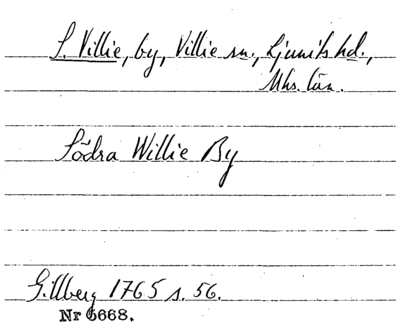 S. Villie, by, Villie sn., Ljunits hd.,
Mhs. län.
Södra Willie By
Gillberg 1765 s. 56.
Nr 6668.